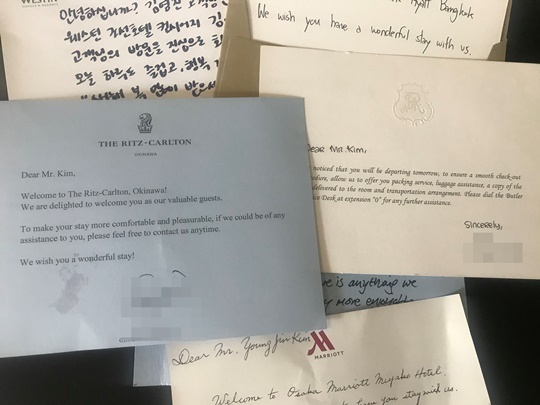 WESTIN
안녕하십니까? 김영진 고객님
웨스틴 조선호텔 컨시어지 김
고객님의 방문을 진심으로
오늘 하루도 즐겁고, 행복
복 많이 받으세
Hyatt Bangkok
We wish you have a wonderful stay with us.
THE RITZ-CARLTON
OKINAWA
Dear Mr. Kim,
Welcome to The Ritz-Carlton, Okinawa!
We are delighted to welcome you as our valuable guests.
To make your stay more comfortable and pleasurable, if we could be of any
assistance to you, please feel free to contact us anytime.
We wish you a wonderful stay!
Dear Mr. Kim,
noticed that you will be departing tomorrow, to ensure a smooth check-out
allow us to offer you packing service, luggage assistance, a copy of the
delivered to the room and transportation arrangement. Please dial the Butler
Desk at extension "0" for any further assistance.
Sincerely,
is anything we
more
MARRIOTT
Dear Mr. Young Jin Kim
Welcome to Osaka Marriott Miyako Hotel.
have you stay with us.